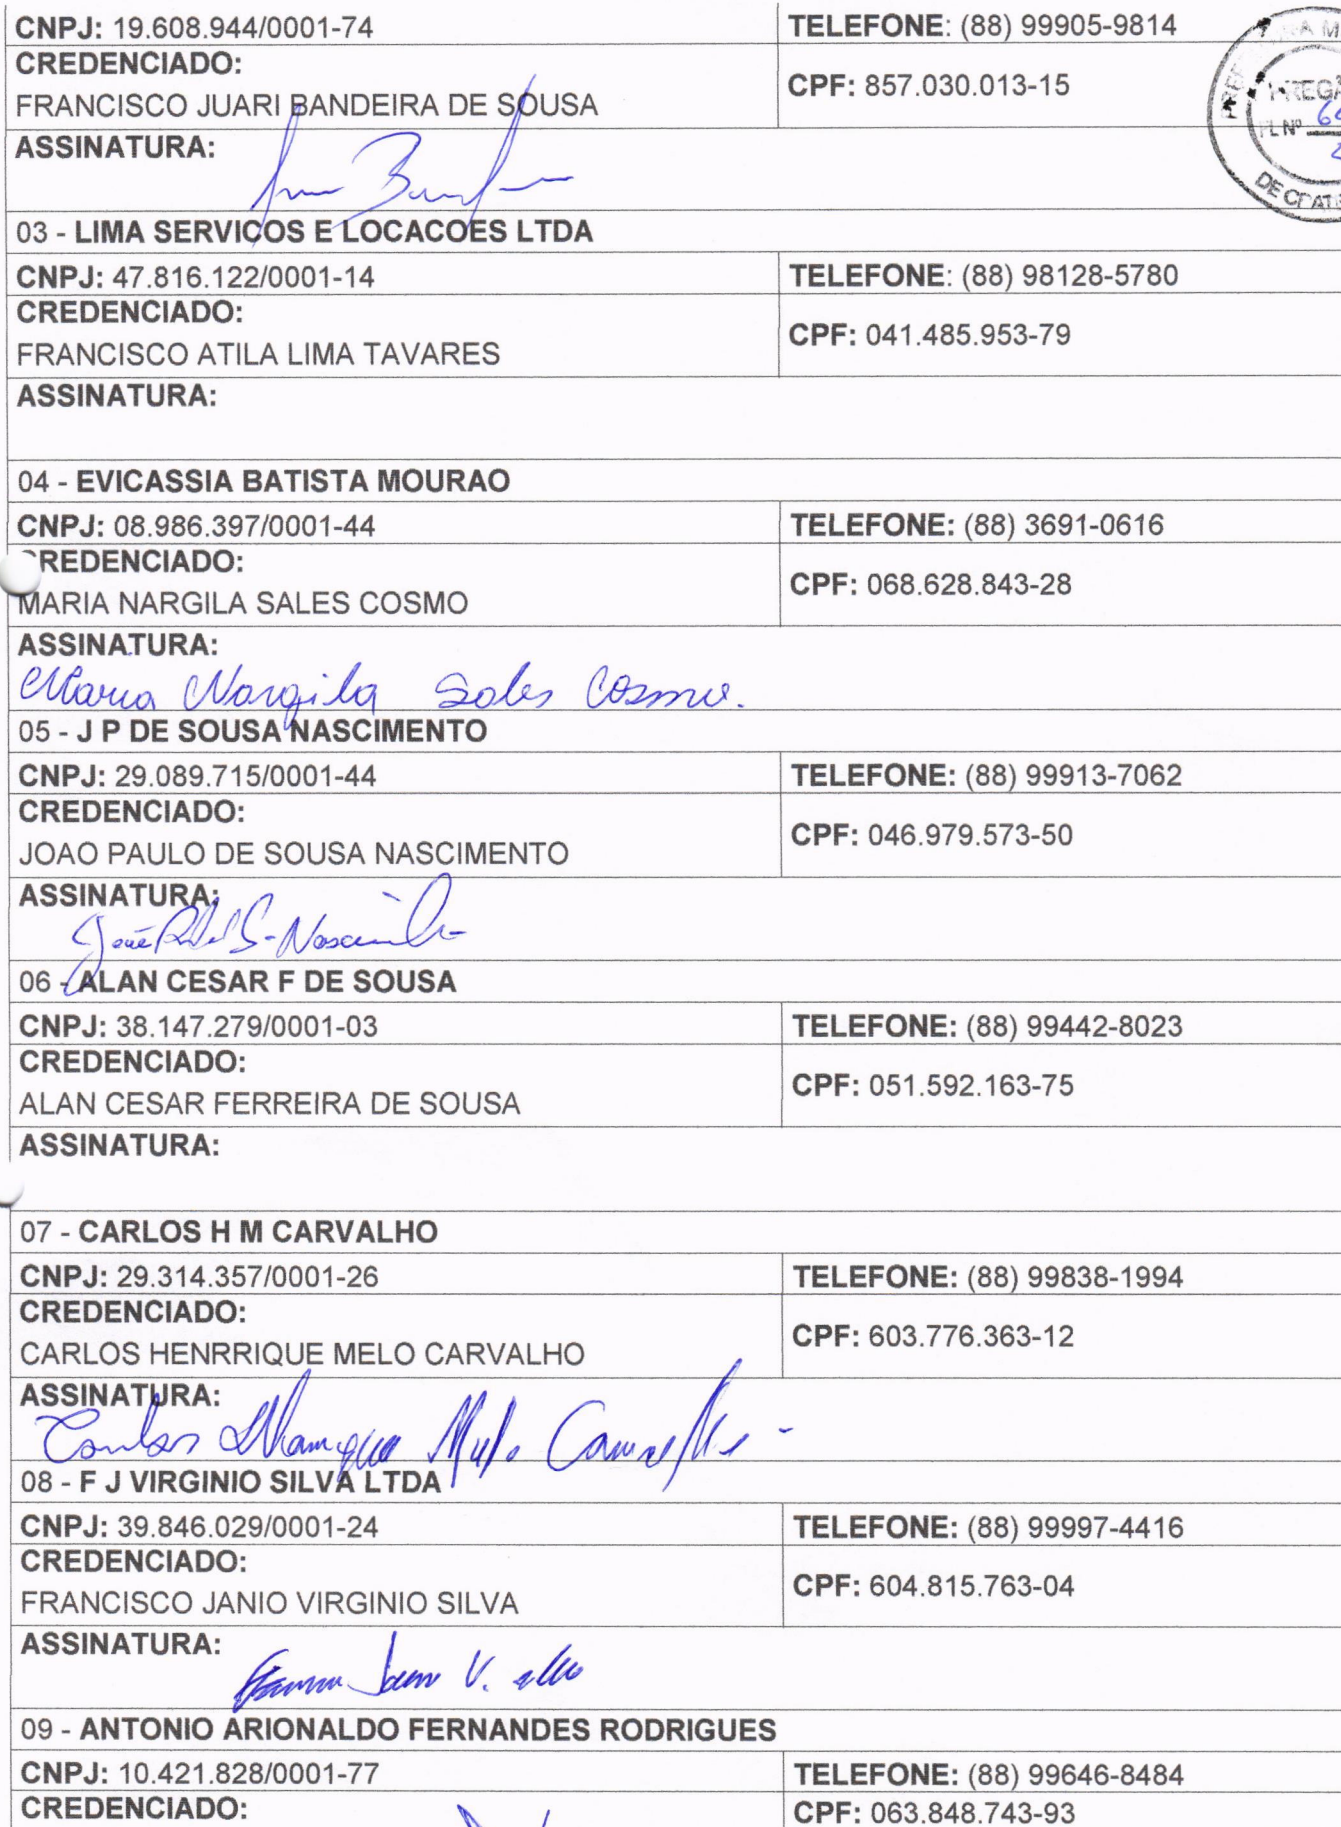 CNPJ: 19.608.944/0001-74 TELEFONE: (88) 99905-9814
CREDENCIADO:
FRANCISCO JUARI BANDEIRA DE SOUSA CPF: 857.030.013-15
ASSINATURA:
03 - LIMA SERVICOS E LOCACOES LTDA
CNPJ: 47.816.122/0001-14 TELEFONE: (88) 98128-5780
CREDENCIADO:
FRANCISCO ATILA LIMA TAVARES CPF: 041.485.953-79
ASSINATURA:
04 - EVICASSIA BATISTA MOURAO
CNPJ: 08.986.397/0001-44 TELEFONE: (88) 3691-0616
CREDENCIADO:
MARIA NARGILA SALES COSMO CPF: 068.628.843-28
ASSINATURA:
Maria Nargila Sales Cosmo.
05 - J P DE SOUSA NASCIMENTO
CNPJ: 29.089.715/0001-44 TELEFONE: (88) 99913-7062
CREDENCIADO:
JOAO PAULO DE SOUSA NASCIMENTO CPF: 046.979.573-50
ASSINATURA:
06 - ALAN CESAR F DE SOUSA
CNPJ: 38.147.279/0001-03 TELEFONE: (88) 99442-8023
CREDENCIADO:
ALAN CESAR FERREIRA DE SOUSA CPF: 051.592.163-75
ASSINATURA:
07 - CARLOS H M CARVALHO
CNPJ: 29.314.357/0001-26 TELEFONE: (88) 99838-1994
CREDENCIADO:
CARLOS HENRRIQUE MELO CARVALHO CPF: 603.776.363-12
ASSINATURA:
08 - F J VIRGINIO SILVA LTDA
CNPJ: 39.846.029/0001-24 TELEFONE: (88) 99997-4416
CREDENCIADO:
FRANCISCO JANIO VIRGINIO SILVA CPF: 604.815.763-04
ASSINATURA:
09 - ANTONIO ARIONALDO FERNANDES RODRIGUES
CNPJ: 10.421.828/0001-77 TELEFONE: (88) 99646-8484
CREDENCIADO: CPF: 063.848.743-93